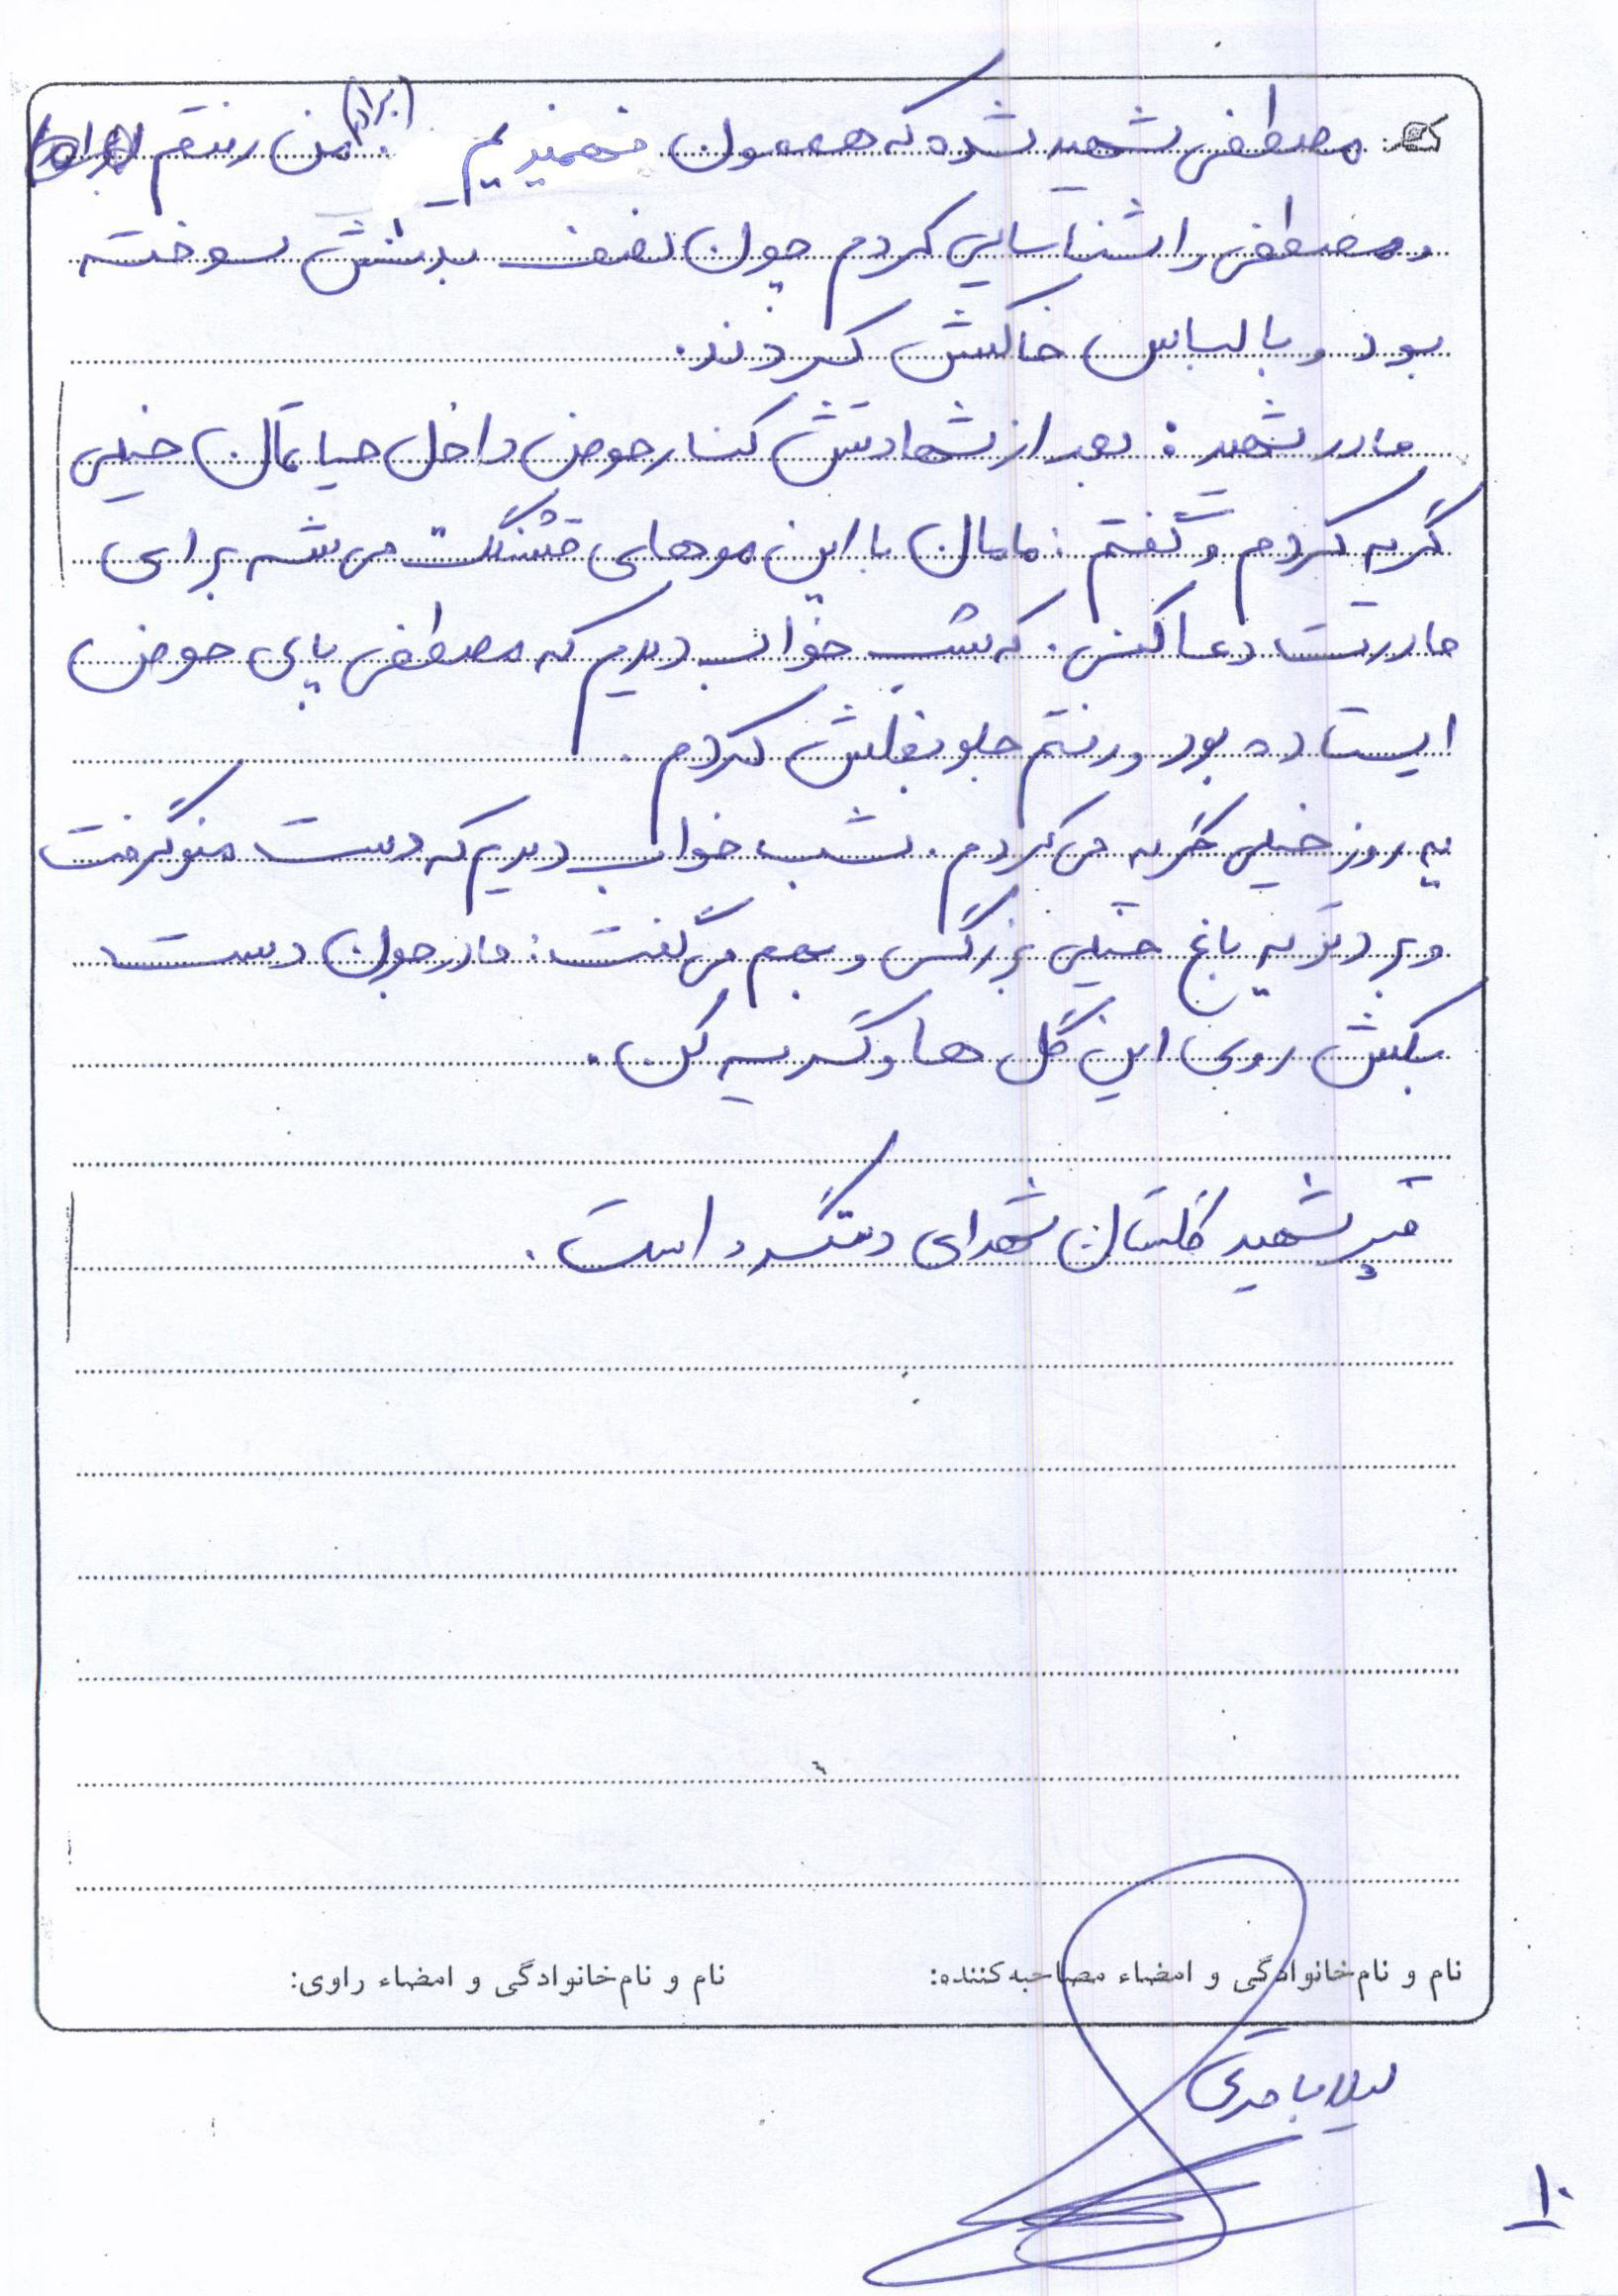 مصطفی شهید شده که هممون فهمیدیم. من (برادر) رفتم
و مصطفی را شناسایی کردم چون نصف بدنش سوخته
بود و با لباس خاکش کردند.
مادر شهید: بعد از شهادتش کنار حوض داخل حیاتمان خیلی
گریه کردم و گفتم: مامان با این موهای قشنگت می شه برای
مادرت دعا کنی. که شب خواب دیدم که مصطفی پای حوض
ایستاده بود و رفتم جلو بغلش کردم.
یه روز خیلی گریه می کردم. شب خواب دیدم که دست منو گرفت
و برد تو یه باغ خیلی بزرگی و بهم می گفت: مادر جون دست
بکش روی این گل ها و گریه نکن.
قبر شهید گلستان شهدای دستگرد است.
نام و نام خانوادگی و امضاء مصاحبه کننده:
نام و نام خانوادگی و امضاء راوی:
لیلا باقری
۱۰